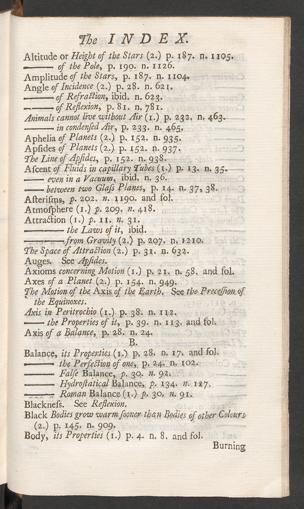 The INDEX.
Altitude or Height of the Stars (2.) p. 187. n. 1105.
—— of the Pole, p. 190. n. 1126.
Amplitude of the Stars, p. 187. n. 1104.
Angle of Incidence (2.) p. 28. n. 621.
—— of Refraction, ibid. n. 623.
—— of Reflexion, p. 81. n. 781.
Animals cannot live without Air (1.) p. 232. n. 463.
—— in condensed Air, p. 233. n. 465.
Aphelia of Planets (2.) p. 152. n. 935.
Apsides of Planets (2.) p. 152. n. 937.
The Line of Apsides, p. 152. n. 938.
Ascent of Fluids in capillary Tubes (1.) p. 13. n. 35.
—— even in a Vacuum, ibid. n. 36.
—— between two Glass Planes, p. 14. n. 37, 38.
Asterisms, p. 202. n. 1190. and fol.
Atmosphere (1.) p. 209. n. 418.
Attraction (1.) p. 11. n. 31.
—— the Laws of it, ibid.
—— from Gravity (2.) p. 207. n. 1210.
The Space of Attraction (2.) p. 31. n. 632.
Auges. See Apsides.
Axioms concerning Motion (1.) p. 21. n. 58. and fol.
Axes of a Planet (2.) p. 154. n. 949.
The Motion of the Axis of the Earth. See the Precession of
the Equinoxes.
Axis in Peritrochio (1.) p. 38. n. 112.
—— the Properties of it, p. 39. n. 113. and fol.
Axis of a Balance, p. 28. n. 24.
B.
Balance, its Properties (1.) p. 28. n. 17. and fol.
—— the Perfection of one, p. 24. n. 102.
—— False Balance, p. 30. n. 92.
—— Hydrostatical Balance, p. 134. n. 127.
—— Roman Balance (1.) p. 30. n. 91.
Blackness. See Reflexion.
Black Bodies grow warm sooner than Bodies of other Colours
(2.) p. 145. n. 909.
Body, its Properties (1.) p. 4. n. 8. and fol.
Burning